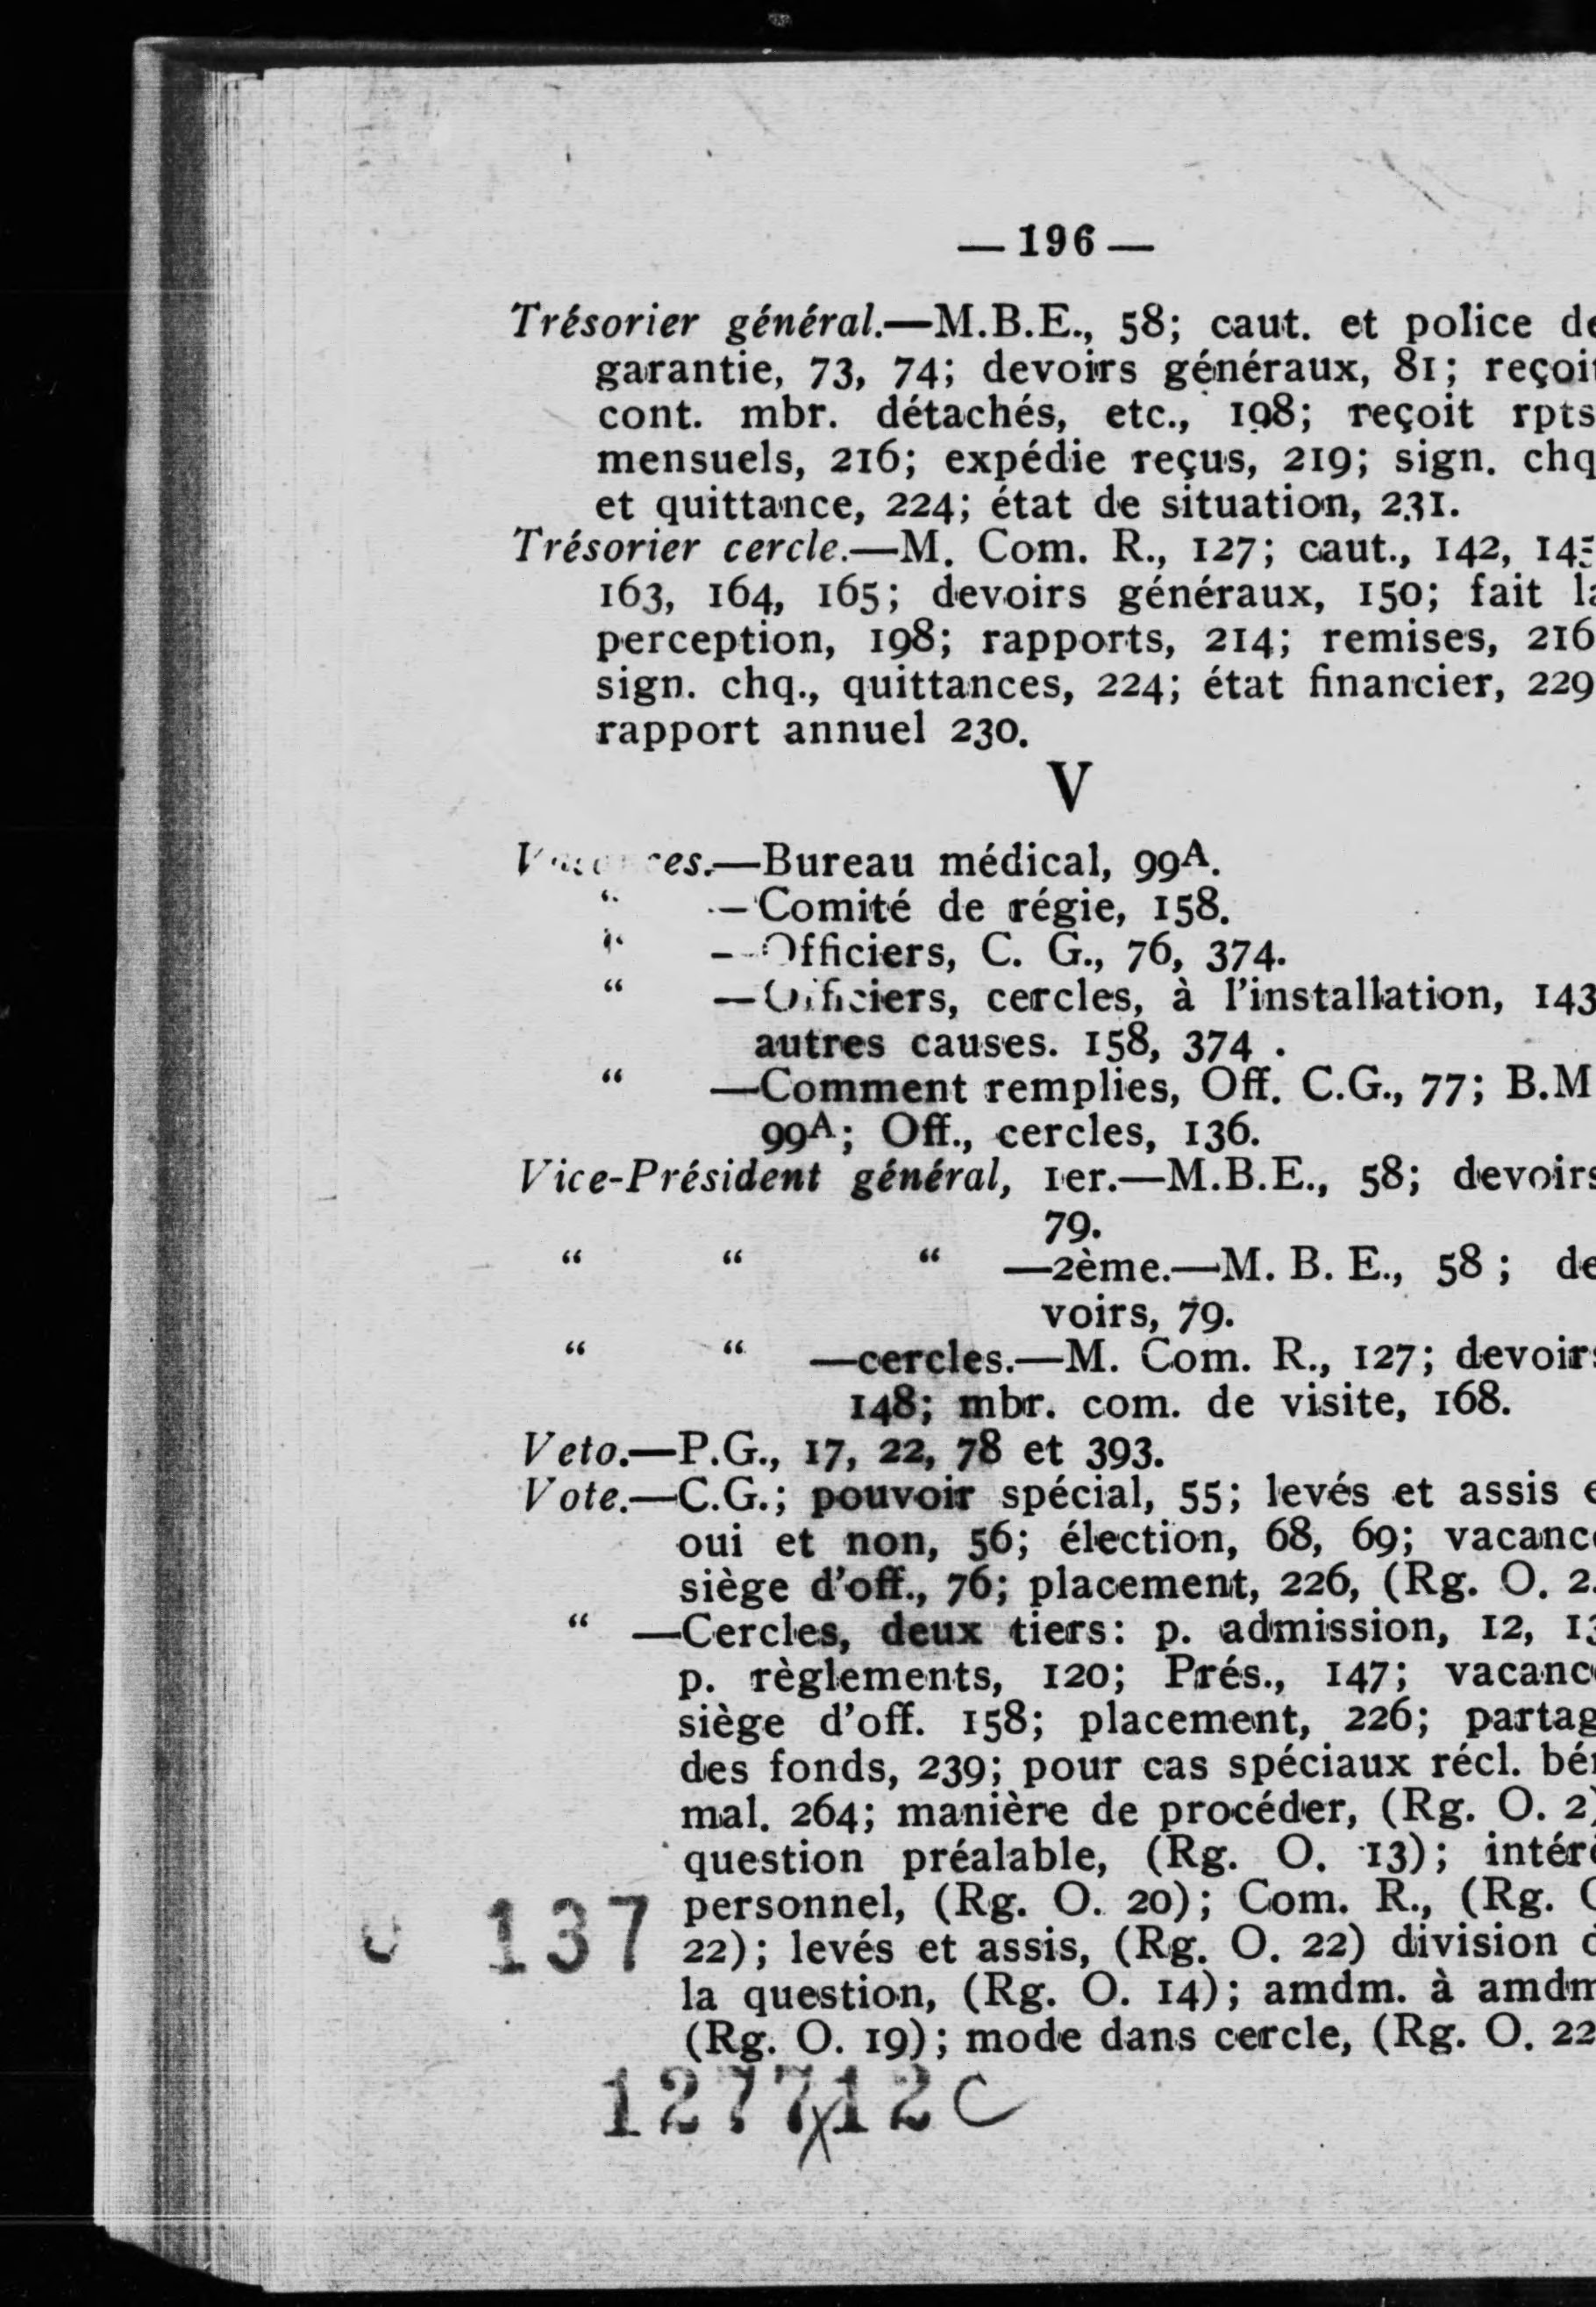 — 196 —
Trésorier général.—M.B.E., 58; caut. et police de
garantie, 73, 74; devoirs généraux, 81; reçoit
cont. mbr. détachés, etc., 198; reçoit rpts
mensuels, 216; expédie reçus, 219; sign. chq
et quittance, 224; état de situation, 231.
Trésorier cercle.—M. Com. R., 127; caut., 142,
163, 164, 165; devoirs généraux, 150; fait
perception, 198; rapports, 214; remises, 216
sign. chq., quittances, 224; état financier, 229
rapport annuel 230.
V
—Bureau médical, 99A.
“ —Comité de régie, 158.
“ —Officiers, C. G., 76, 374.
“ —Officiers, cercles, à l'installation, 143
autres causes. 158, 374 .
“ —Comment remplies, Off. C.G., 77; B.M
99A; Off., cercles, 136.
Vice-Président général, 1er.—M.B.E., 58; devoirs
79.
“ “ “ —2ème.—M. B. E., 58 ; de
voirs, 79.
“ “ —cercles.—M. Com. R., 127; devoirs
148; mbr. com. de visite, 168.
Veto.—P.G., 17, 22, 78 et 393.
Vote.—C.G.; pouvoir spécial, 55; levés et assis
oui et non, 56; élection, 68, 69; vacance
siège d'off., 76; placement, 226, (Rg. O. 2.
“ —Cercles, deux tiers: p. admission, 12,
p. règlements, 120; Prés., 147; vacance
siège d'off. 158; placement, 226; partag
des fonds, 239; pour cas spéciaux récl.
mal. 264; manière de procéder, (Rg. O. 2)
question préalable, (Rg. O. 13); intérê
personnel, (Rg. O. 20); Com. R., (Rg.
22); levés et assis, (Rg. O. 22) division
la question, (Rg. O. 14); amdm. à amdm
(Rg. O. 19); mode dans cercle, (Rg. O. 22
137